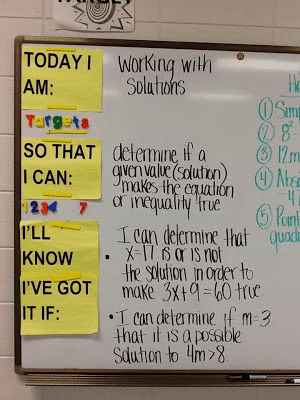 TARGET
TODAY I
AM:
Working with
Solutions
Targets
SO THAT
I CAN:
determine if a
given value (solution)
makes the equation
or inequality true
1234 7
I'LL
KNOW
I'VE GOT
IT IF:
• I can determine that
x=17 is or is not
the solution in order to
make 3x+9=60 true
• I can determine if m=3
that it is a possible
solution to 4m>8.
① Simp
② 8²
③ 12m
④ Abso
4
⑤ Point
quad